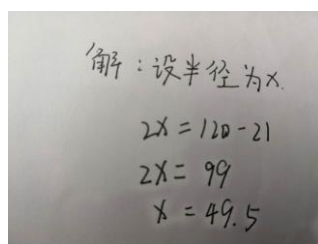 解：设半径为x.
2x=120-21
2x=99
x=49.5